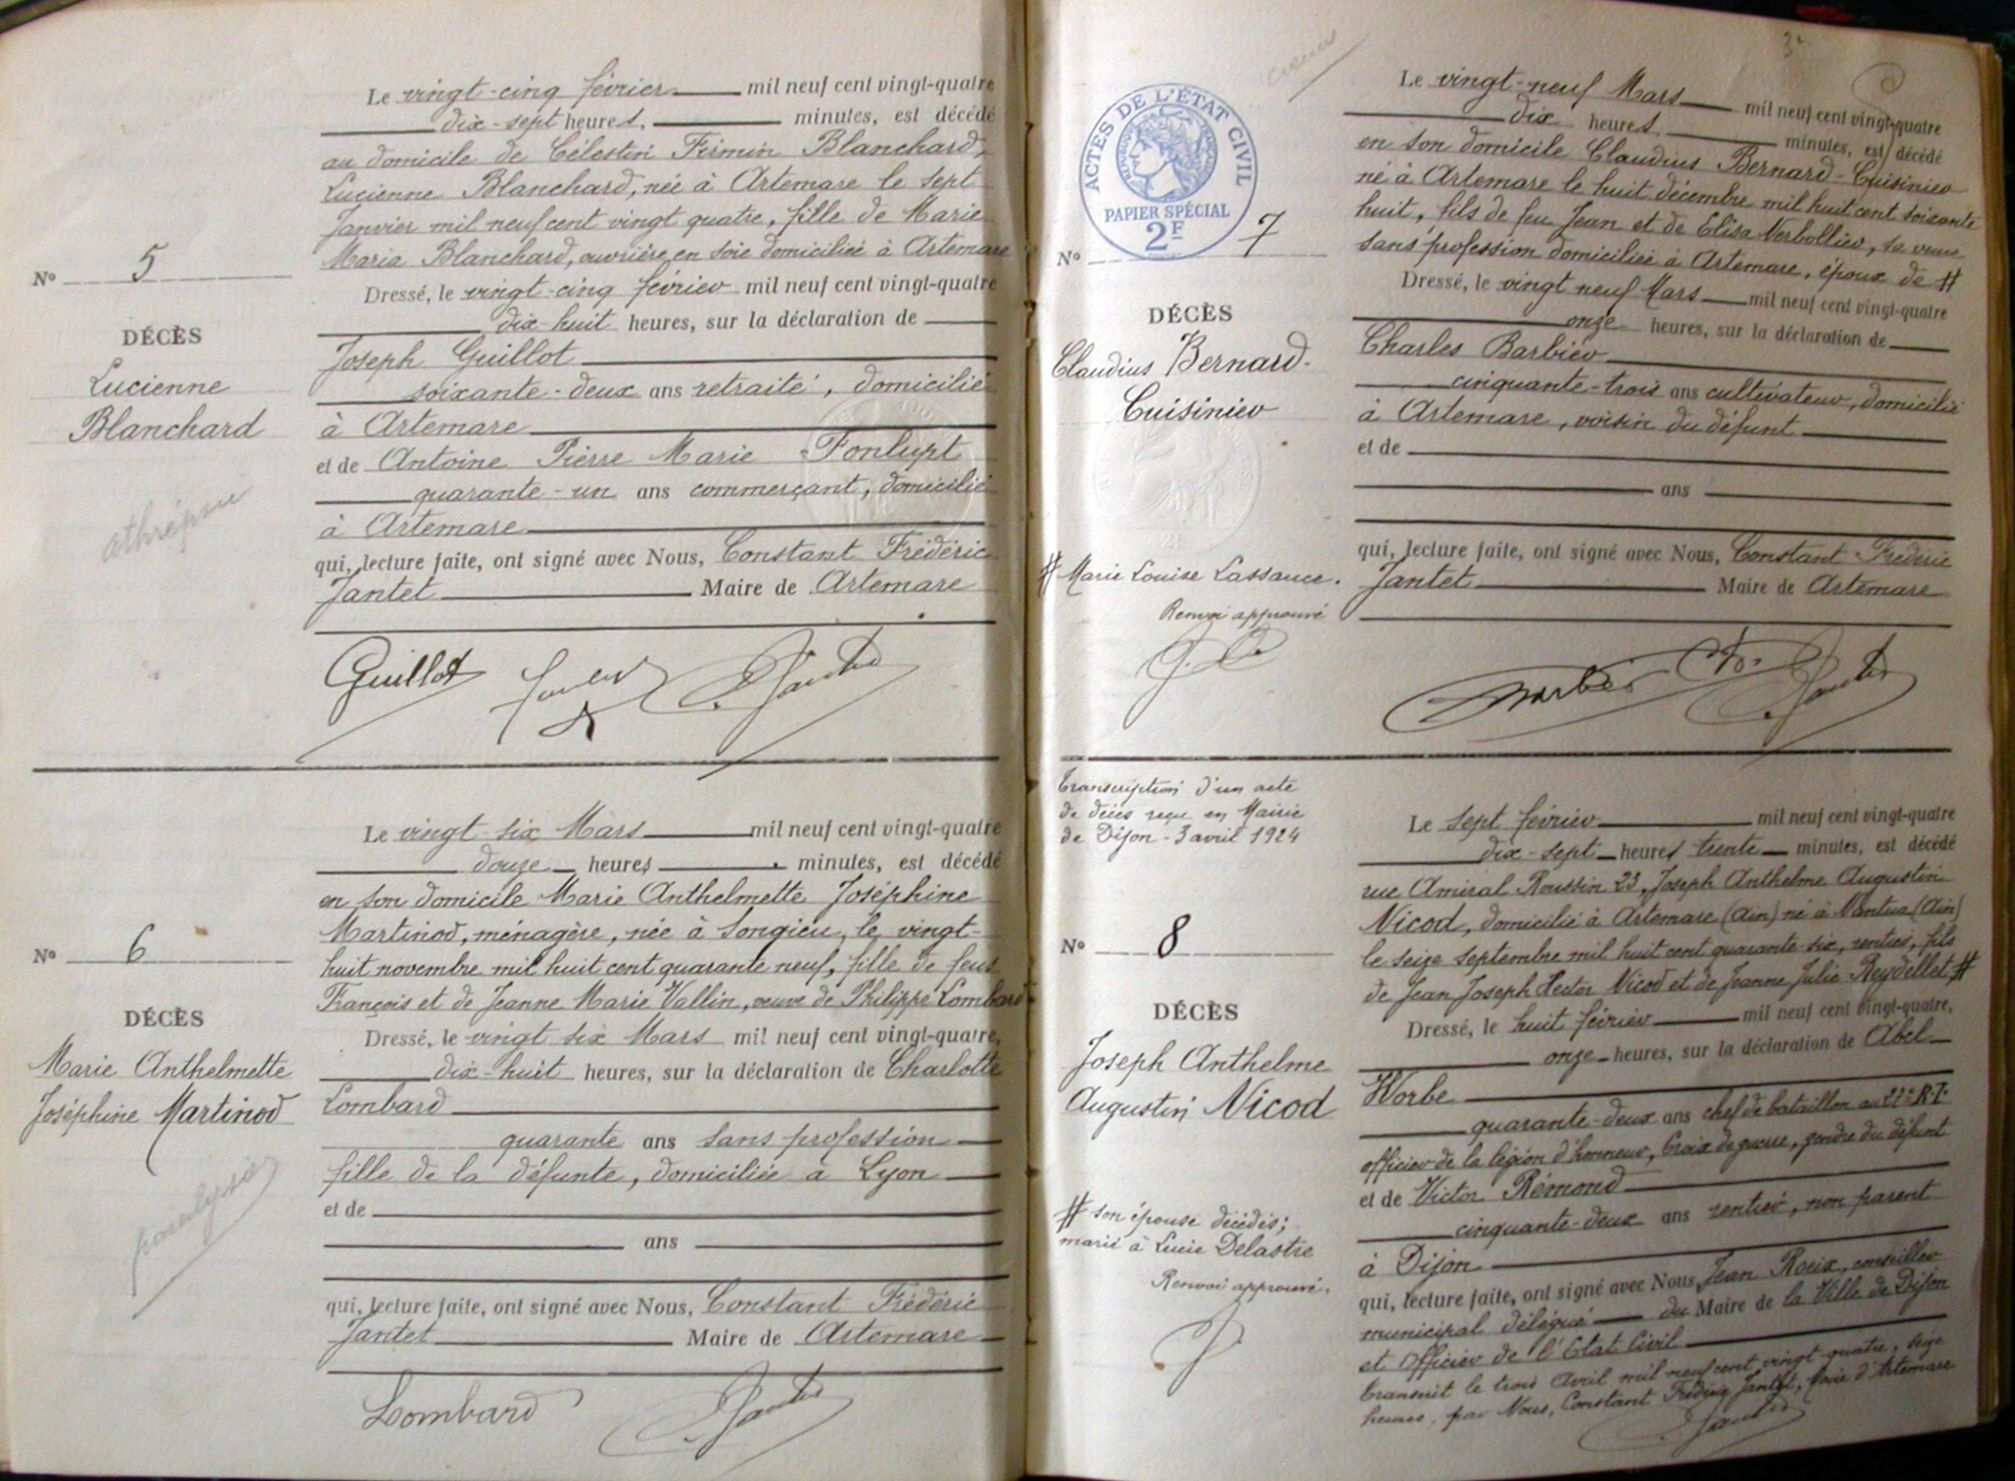 Le vingt-cinq février mil neuf cent vingt-quatre
dix-sept heures, minutes, est décédé
au domicile de Célestin Firmin Blanchard,
Lucienne Blanchard, née à Artemare le sept
Janvier mil neuf cent vingt quatre, fille de Marie
Maria Blanchard, ouvrière en soie domiciliée à Artemare
No 5
Dressé, le vingt-cinq février mil neuf cent vingt-quatre
dix-huit heures, sur la déclaration de
DÉCÈS
Lucienne
Blanchard
Joseph Guillot
soixante-deux ans retraité, domicilié
à Artemare
et de Antoine Pierre Marie Fonlupt
quarante-un ans commerçant, domicilié
à Artemare
qui, lecture faite, ont signé avec Nous, Constant Frédéric
Jantet Maire de Artemare
Guillot
Le vingt six Mars mil neuf cent vingt-quatre
douze heures minutes, est décédé
en son domicile Marie Anthelmette Joséphine
Martinod, ménagère, née à Songieu, le vingt-
huit novembre mil huit cent quarante neuf, fille de feus
François et de Jeanne Marie Vallin, veuve de Philippe Lombard
No 6
Dressé, le vingt six Mars mil neuf cent vingt-quatre,
dix-huit heures, sur la déclaration de Charlotte
DÉCÈS
Marie Anthelmette
Joséphine Martinod
paralysie
Lombard
quarante ans sans profession
fille de la défunte, domiciliée à Lyon
et de
ans
qui, lecture faite, ont signé avec Nous, Constant Frédéric
Jantet Maire de Artemare
Lombard
Jantet
3
ACTES DE L'ÉTAT CIVIL
PAPIER SPÉCIAL
2F
No 7
Le vingt-neuf Mars mil neuf cent vingt-quatre
dix heures minutes, est décédé
en son domicile Claudius Bernard-Cuisinier
né à Artemare le huit décembre mil huit cent soixante
huit, fils de feu Jean et de Elisa Verbollier, sa veuve
sans profession domiciliée à Artemare, époux de #
DÉCÈS
Claudius Bernard-
Cuisinier
Dressé, le vingt neuf Mars mil neuf cent vingt-quatre
onze heures, sur la déclaration de
Charles Barbier
cinquante-trois ans cultivateur, domicilié
à Artemare, voisin du défunt
et de
ans
# Marie Louise Lassauce.
Renvoi approuvé
qui, lecture faite, ont signé avec Nous, Constant Frédéric
Jantet Maire de Artemare
Barbier Ch.
Jantet
Transcription d'un acte
de décès reçu en Mairie
de Dijon - 3 avril 1924
No 8
Le sept février mil neuf cent vingt-quatre
dix-sept heures trente minutes, est décédé
rue Amiral Roussin 23, Joseph Anthelme Augustin
Nicod, domicilié à Artemare (Ain) né à Nantua (Ain)
le seize septembre mil huit cent quarante-six, rentier, fils
de Jean Joseph Hector Nicod et de Jeanne Julie Reydellet, #
DÉCÈS
Joseph Anthelme
Augustin Nicod
Dressé, le huit février mil neuf cent vingt-quatre,
onze heures, sur la déclaration de Abel
Worbe
quarante-deux ans chef de bataillon au 27e R.I.
officier de la légion d'honneur, Croix de guerre, gendre du défunt
et de Victor Rémond
cinquante-deux ans rentier, non parent
à Dijon
# son épouse décédés;
marié à Lucie Delastre
Renvoi approuvé.
qui, lecture faite, ont signé avec Nous, Jean Roux, conseiller
municipal délégué du Maire de la Ville de Dijon
et Officier de l'Etat Civil
Transcrit le trois Avril mil neuf cent vingt quatre, seize
heures, par Nous, Constant Frédéric Jantet, Maire d'Artemare
Jantet